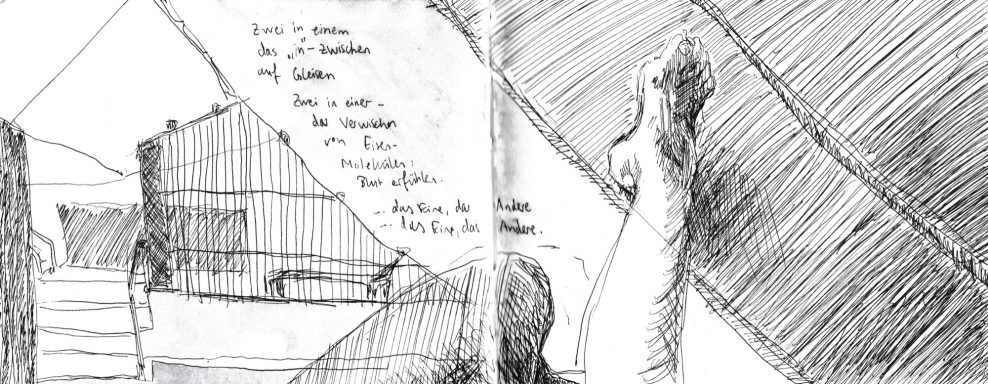 Zwei in einem
das „in“-zwischen
auf Gleisen
Zwei in einer –
das Verwischen
von Eisen-
Molekülen:
Blut erfühlen.
... das Eine, das Andere
... das Eine, das Andere.